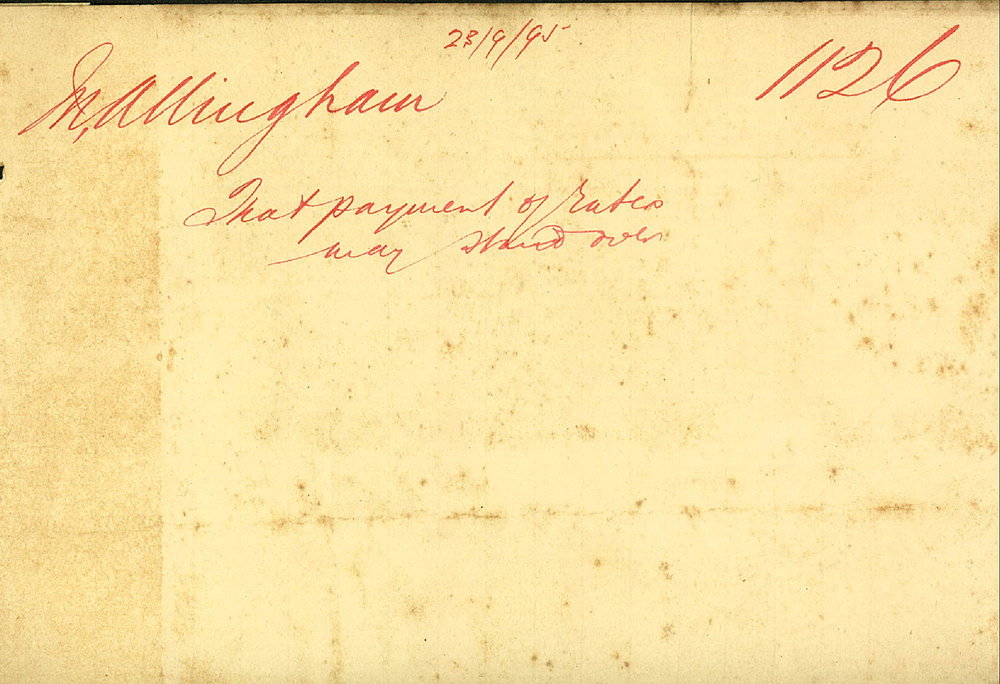 23/9/95
1126
M, Allingham
That payment of rates
may stand over